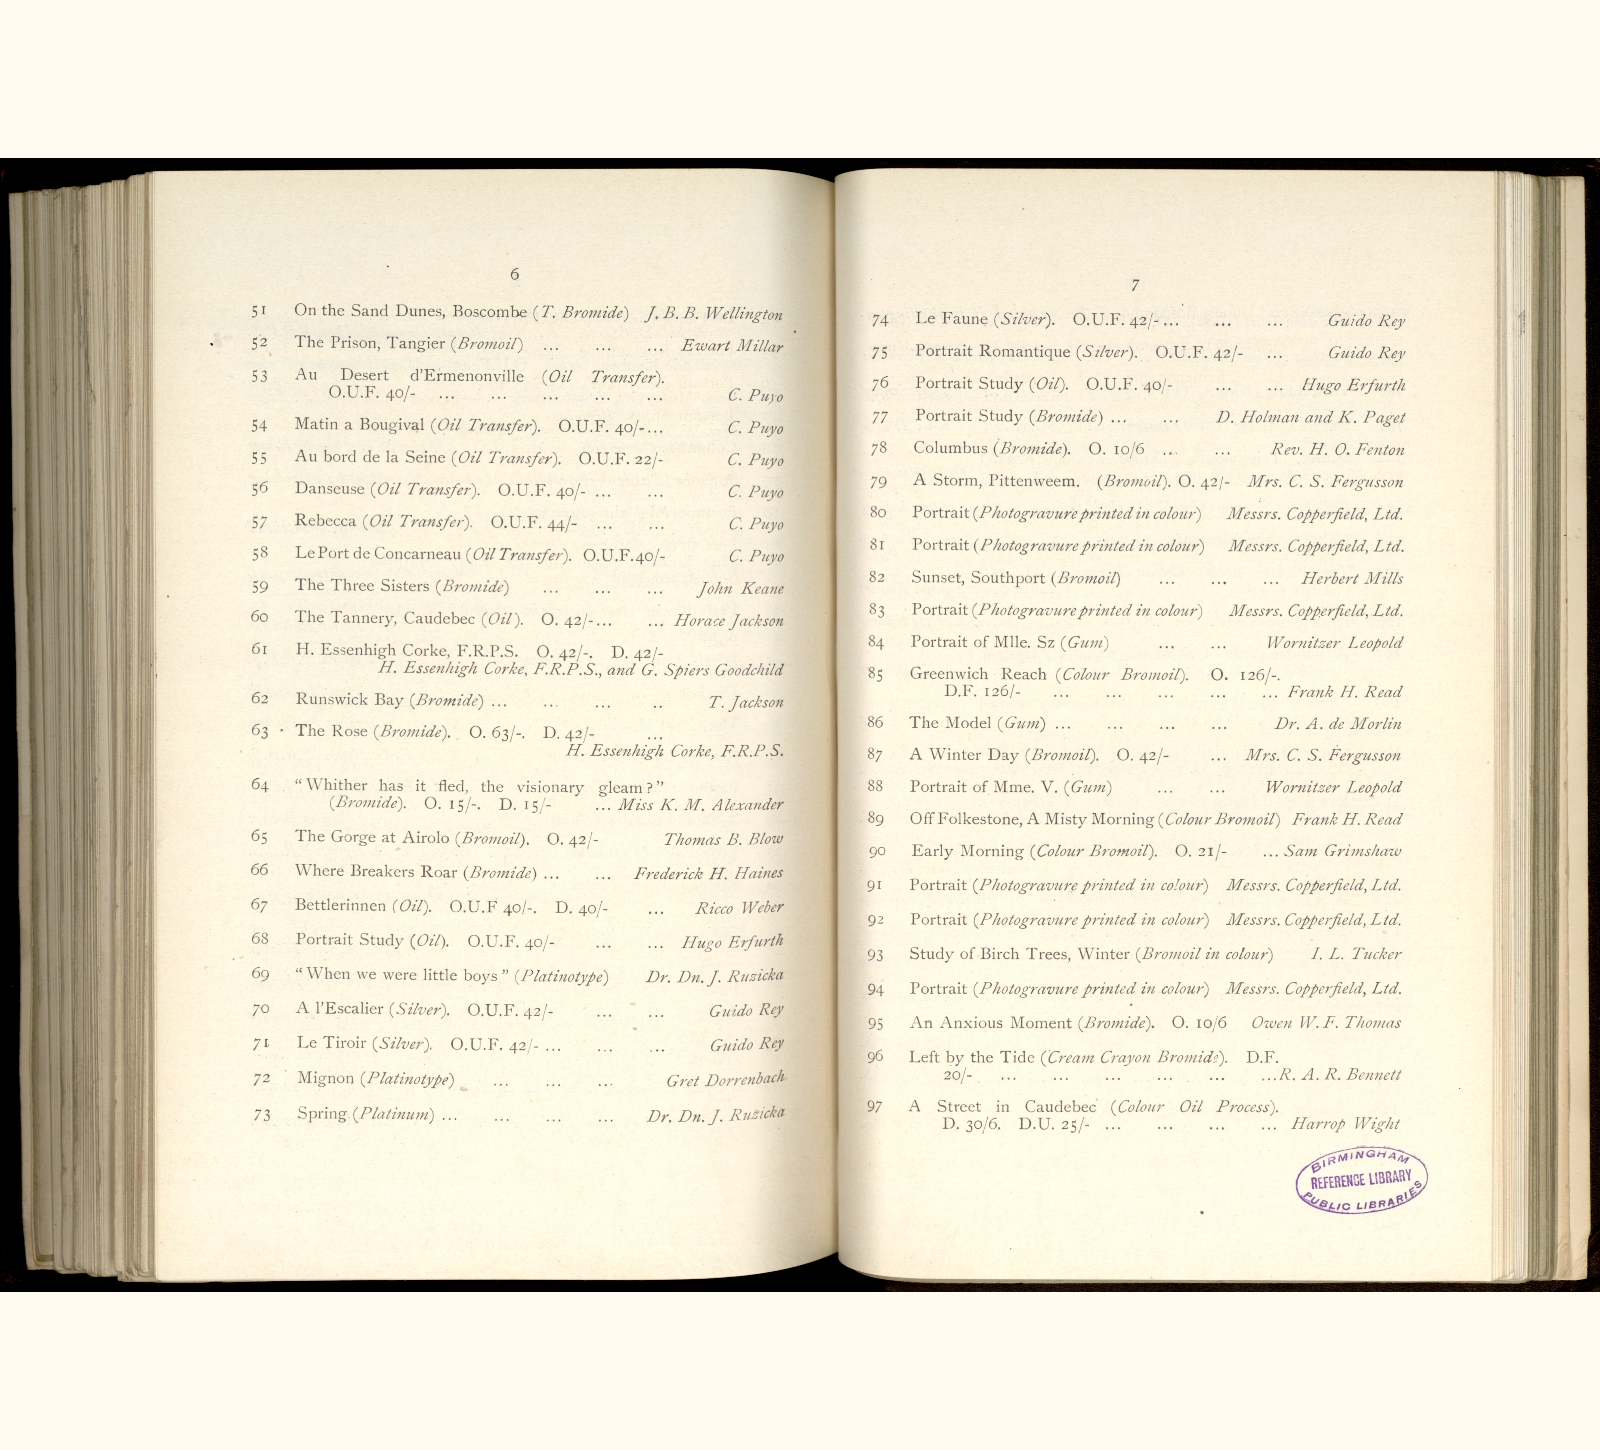 6
51 On the Sand Dunes, Boscombe (T. Bromide) J. B. B. Wellington
52 The Prison, Tangier (Bromoil) ... ... ... Ewart Millar
53 Au Desert d'Ermenonville (Oil Transfer).
O.U.F. 40/- ... ... ... ... ... C. Puyo
54 Matin a Bougival (Oil Transfer). O.U.F. 40/-... C. Puyo
55 Au bord de la Seine (Oil Transfer). O.U.F. 22/- C. Puyo
56 Danseuse (Oil Transfer). O.U.F. 40/- ... ... C. Puyo
57 Rebecca (Oil Transfer). O.U.F. 44/- ... ... C. Puyo
58 Le Port de Concarneau (Oil Transfer). O.U.F. 40/- C. Puyo
59 The Three Sisters (Bromide) ... ... ... John Keane
60 The Tannery, Caudebec (Oil). O. 42/-... ... Horace Jackson
61 H. Essenhigh Corke, F.R.P.S. O. 42/-. D. 42/-
H. Essenhigh Corke, F.R.P.S., and G. Spiers Goodchild
62 Runswick Bay (Bromide) ... ... ... .. T. Jackson
63 The Rose (Bromide). O. 63/-. D. 42/- ...
H. Essenhigh Corke, F.R.P.S.
64 "Whither has it fled, the visionary gleam?"
(Bromide). O. 15/-. D. 15/- ... Miss K. M. Alexander
65 The Gorge at Airolo (Bromoil). O. 42/- Thomas B. Blow
66 Where Breakers Roar (Bromide) ... ... Frederick H. Haines
67 Bettlerinnen (Oil). O.U.F 40/-. D. 40/- ... Ricco Weber
68 Portrait Study (Oil). O.U.F. 40/- ... ... Hugo Erfurth
69 "When we were little boys" (Platinotype) Dr. Dn. J. Ruzicka
70 A l'Escalier (Silver). O.U.F. 42/- ... ... Guido Rey
71 Le Tiroir (Silver). O.U.F. 42/- ... ... ... Guido Rey
72 Mignon (Platinotype) ... ... ... Gret Dorrenbach
73 Spring (Platinum) ... ... ... ... Dr. Dn. J. Ruzicka
7
74 Le Faune (Silver). O.U.F. 42/-... ... ... Guido Rey
75 Portrait Romantique (Silver). O.U.F. 42/- ... Guido Rey
76 Portrait Study (Oil). O.U.F. 40/- ... ... Hugo Erfurth
77 Portrait Study (Bromide) ... ... D. Holman and K. Paget
78 Columbus (Bromide). O. 10/6 ... ... Rev. H. O. Fenton
79 A Storm, Pittenweem. (Bromoil). O. 42/- Mrs. C. S. Fergusson
80 Portrait (Photogravure printed in colour) Messrs. Copperfield, Ltd.
81 Portrait (Photogravure printed in colour) Messrs. Copperfield, Ltd.
82 Sunset, Southport (Bromoil) ... ... ... Herbert Mills
83 Portrait (Photogravure printed in colour) Messrs. Copperfield, Ltd.
84 Portrait of Mlle. Sz (Gum) ... ... Wornitzer Leopold
85 Greenwich Reach (Colour Bromoil). O. 126/-.
D.F. 126/- ... ... ... ... ... Frank H. Read
86 The Model (Gum) ... ... ... ... Dr. A. de Morlin
87 A Winter Day (Bromoil). O. 42/- ... Mrs. C. S. Fergusson
88 Portrait of Mme. V. (Gum) ... ... Wornitzer Leopold
89 Off Folkestone, A Misty Morning (Colour Bromoil) Frank H. Read
90 Early Morning (Colour Bromoil). O. 21/- ... Sam Grimshaw
91 Portrait (Photogravure printed in colour) Messrs. Copperfield, Ltd.
92 Portrait (Photogravure printed in colour) Messrs. Copperfield, Ltd.
93 Study of Birch Trees, Winter (Bromoil in colour) I. L. Tucker
94 Portrait (Photogravure printed in colour) Messrs. Copperfield, Ltd.
95 An Anxious Moment (Bromide). O. 10/6 Owen W. F. Thomas
96 Left by the Tide (Cream Crayon Bromide). D.F.
20/- ... ... ... ... ... ...R. A. R. Bennett
97 A Street in Caudebec (Colour Oil Process).
D. 30/6. D.U. 25/- ... ... ... ... Harrop Wight
BIRMINGHAM
REFERENCE LIBRARY
PUBLIC LIBRARIES